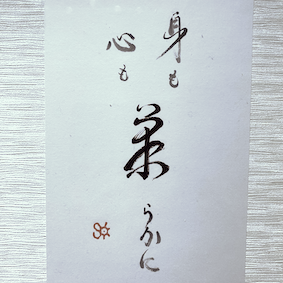 身も
心も
柔らかに